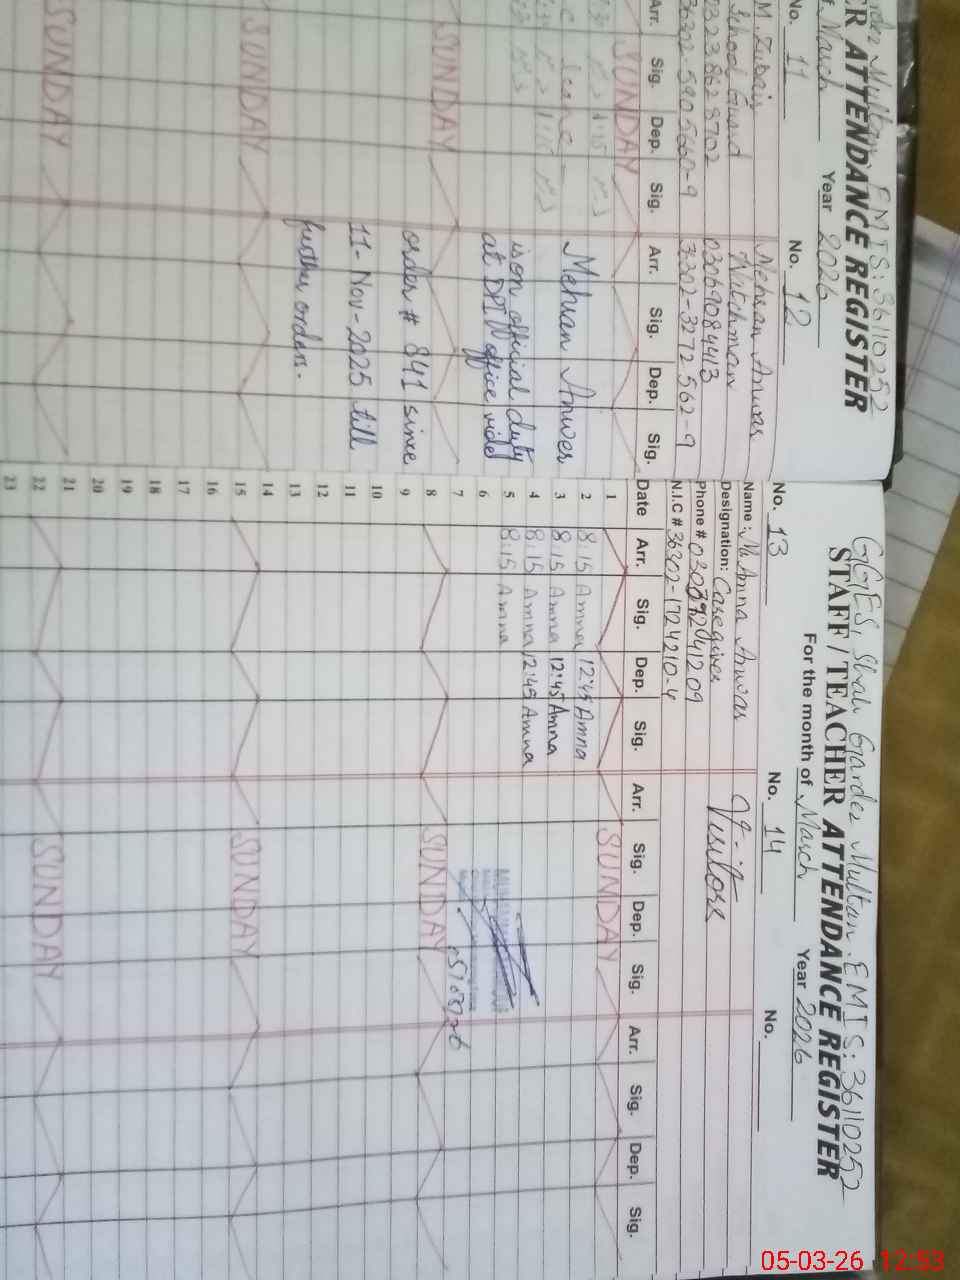 ER ATTENDANCE REGISTER
Multan. EMIS: 36110252
f March Year 2026
No. 11 No. 12
M. Zubair
School Guard
03238628702
36302-5905660-9
Arr. Sig. Dep. Sig. Arr. Sig. Dep. Sig.
SUNDAY
Mehran Anwar
Watchman
03069084413
36302-3272562-9
Mehran Anwer
is on official duty
at DPI office, vide
order # 841 since
11-Nov-2025 till
further orders.
SUNDAY
SUNDAY
SUNDAY
GGES, Shah Gardez Multan. EMIS: 36110252
STAFF / TEACHER ATTENDANCE REGISTER
For the month of March Year 2026
No. 13 No. 14 No.
Name : M. Amna Anwar
Designation: Caregiver
Phone #
N.I.C # 36302-1724210-4
Visitors
Date Arr. Sig. Dep. Sig. Arr. Sig. Dep. Sig. Arr. Sig. Dep. Sig.
1 SUNDAY
2 8:15 Amna 12:45 Amna
3 8:15 Amna 12:45 Amna
4 8:15 Amna 12:45 Amna
5 8:15 Amna
6
7
8 SUNDAY
9
10
11
12
13
14
15 SUNDAY
16
17
18
19
20
21
22 SUNDAY
23
05-03-26 12:53